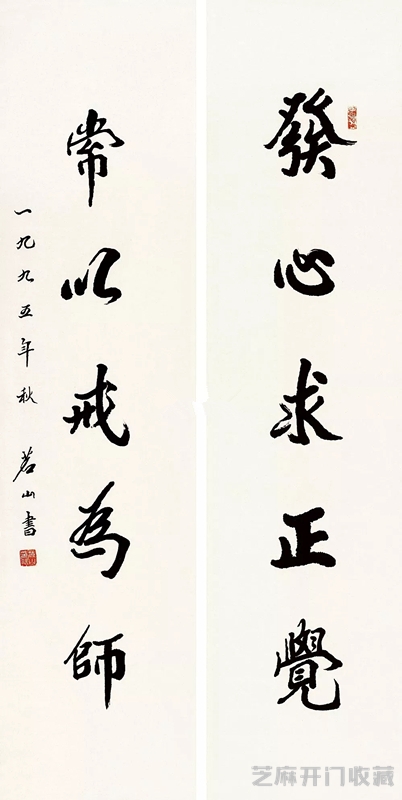 發心求正覺
常以戒為師
一九九五年秋 茗山書
芝麻开门收藏